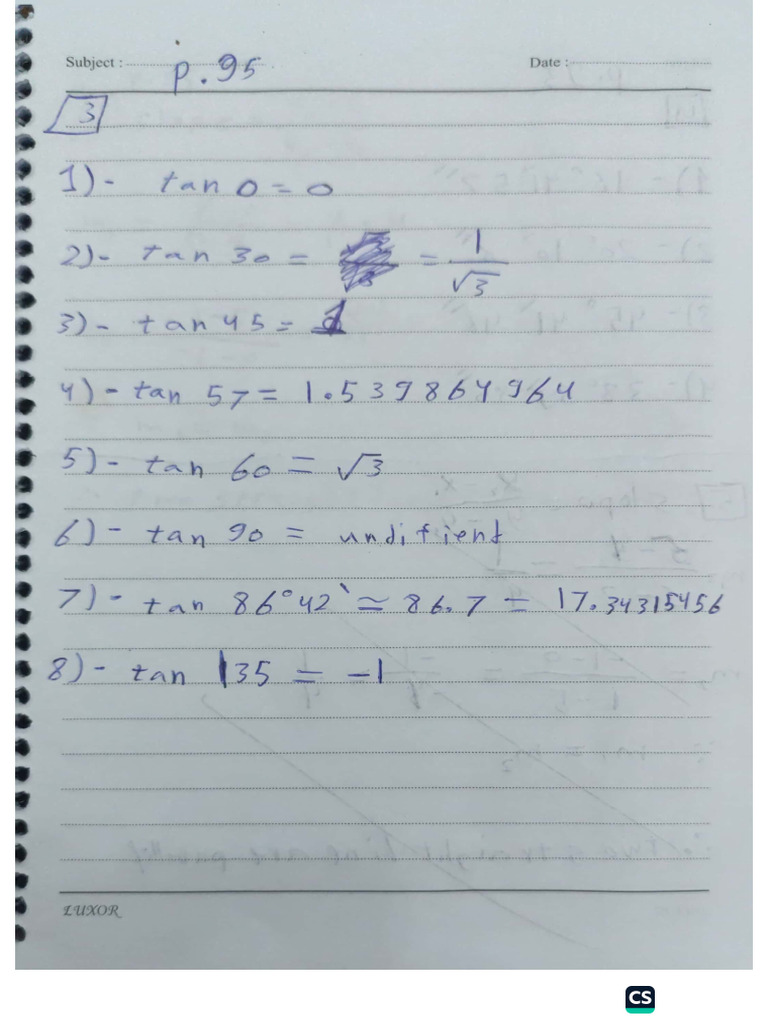 Subject : p.95 Date :
3
1)- tan 0 = 0
2)- tan 30 = = 1/√3
3)- tan 45 = 1
4)- tan 57 = 1.539864964
5)- tan 60 = √3
6)- tan 90 = undifient
7)- tan 86°42` ≃ 86.7 = 17.34315456
8)- tan 135 = -1
LUXOR
CS